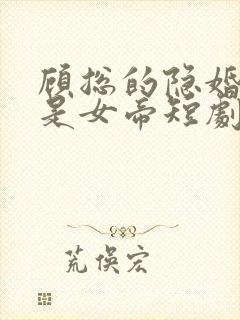 顾总的隐婚
是女帝短劇
荒俁宏